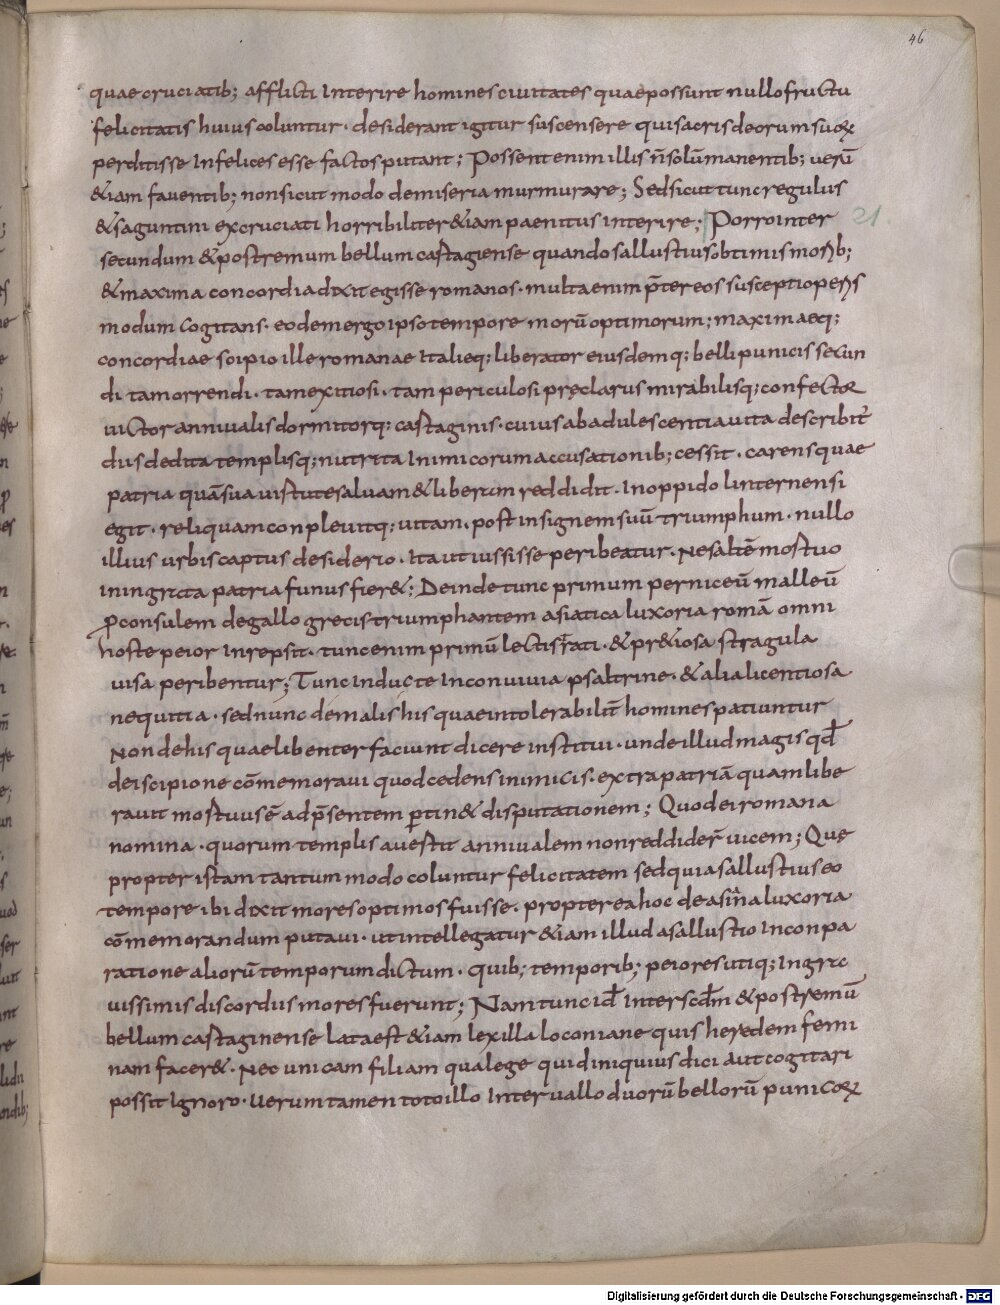 46
quae cruciatib; afflicti Interire homines ciuitates quae possunt nullo fructu
felicitatis huius coluntur. desiderant igitur suscensere qui sacris deorum suoꝝ
perditis se Infelices esse factos putant; Possent enim illis ñ solū manentib; uerū
&iam fauentib; non sicut modo de miseria murmurare; Sed sicut tunc regulus
& saguntini excruciati horribiliter &iam paenitus interire; Porro inter
21.
secundum & postremum bellum cartagiense quando sallustius obtimis morib;
& maxima concordia dixit egisse romanos. multa enim p̄tereo suscepti operis
modum Cogitans. eodem ergo ipso tempore morū optimorum; maximaeq;
concordiae scipio ille romanae Italieq; liberator eiusdemq; belli punicis secun
di tam orrendi. tam exitiosi. tam periculosi pręclarus mirabilisq; confector
uictor anniualis dormitorq; cartaginis. cuius ab adulescentia uita describit̄
diis dedita templisq; nutrita Inimicorum accusationib; cessit. carensquae
patria quā sua uirtute saluam & liberam reddidit. In oppido linternensi
egit. reliquam conpleuitq; uitam. post insignem suū triumphum. nullo
illius urbis captus desiderio. Ita ut iussisse peribeatur. Ne saltē mortuo
In ingrata patria funus fier&; Deinde tunc primum per niceū malleū
ꝓconsulem de gallogrecis triumphantem asiatica luxoria romā omni
hoste peior Inrepsit. tunc enim primū lectis ęrati. & pr&iosa stragula
uisa peribentur; Tunc inducte In conuiuia psaltrine. & alia licentiosa
nequitia. sed nunc de malis his quae intolerabilit̄ homines patiuntur
Non de his quae libenter faciunt dicere institui. unde illud magis qđ
de iscipione cōmemoraui quod cedens inimicis. extra patriā quam libe
rauit mortuus ē ad p̄sentem ꝑtin& disputationem; Quod ei romana
nomina. quorum templis auertit anniualem non reddider̄ uicem; Quę
propter istam tantum modo coluntur felicitatem sed quia sallustius eo
tempore ibi dixit mores optimos fuisse. propterea hoc de asiāna luxoria
cōmemorandum putaui. ut intellegatur &iam illud a sallustio In conpa
ratione aliorū temporum dictum. quib; temporib; peiores utiq; In gra
uissimis discordiis mores fuerunt; Nam tunc id̄ Inter scdm̄ & postremū
bellum cartaginense lata est &iam lex illa loconiane quis heredem femi
nam facer&. Nec unicam filiam qua lege quid iniquius dici aut cogitari
possit Ignoro. Uerumtamen toto illo Interuallo duorū bellorū punicoꝝ
Digitalisierung gefördert durch die Deutsche Forschungsgemeinschaft - DFG